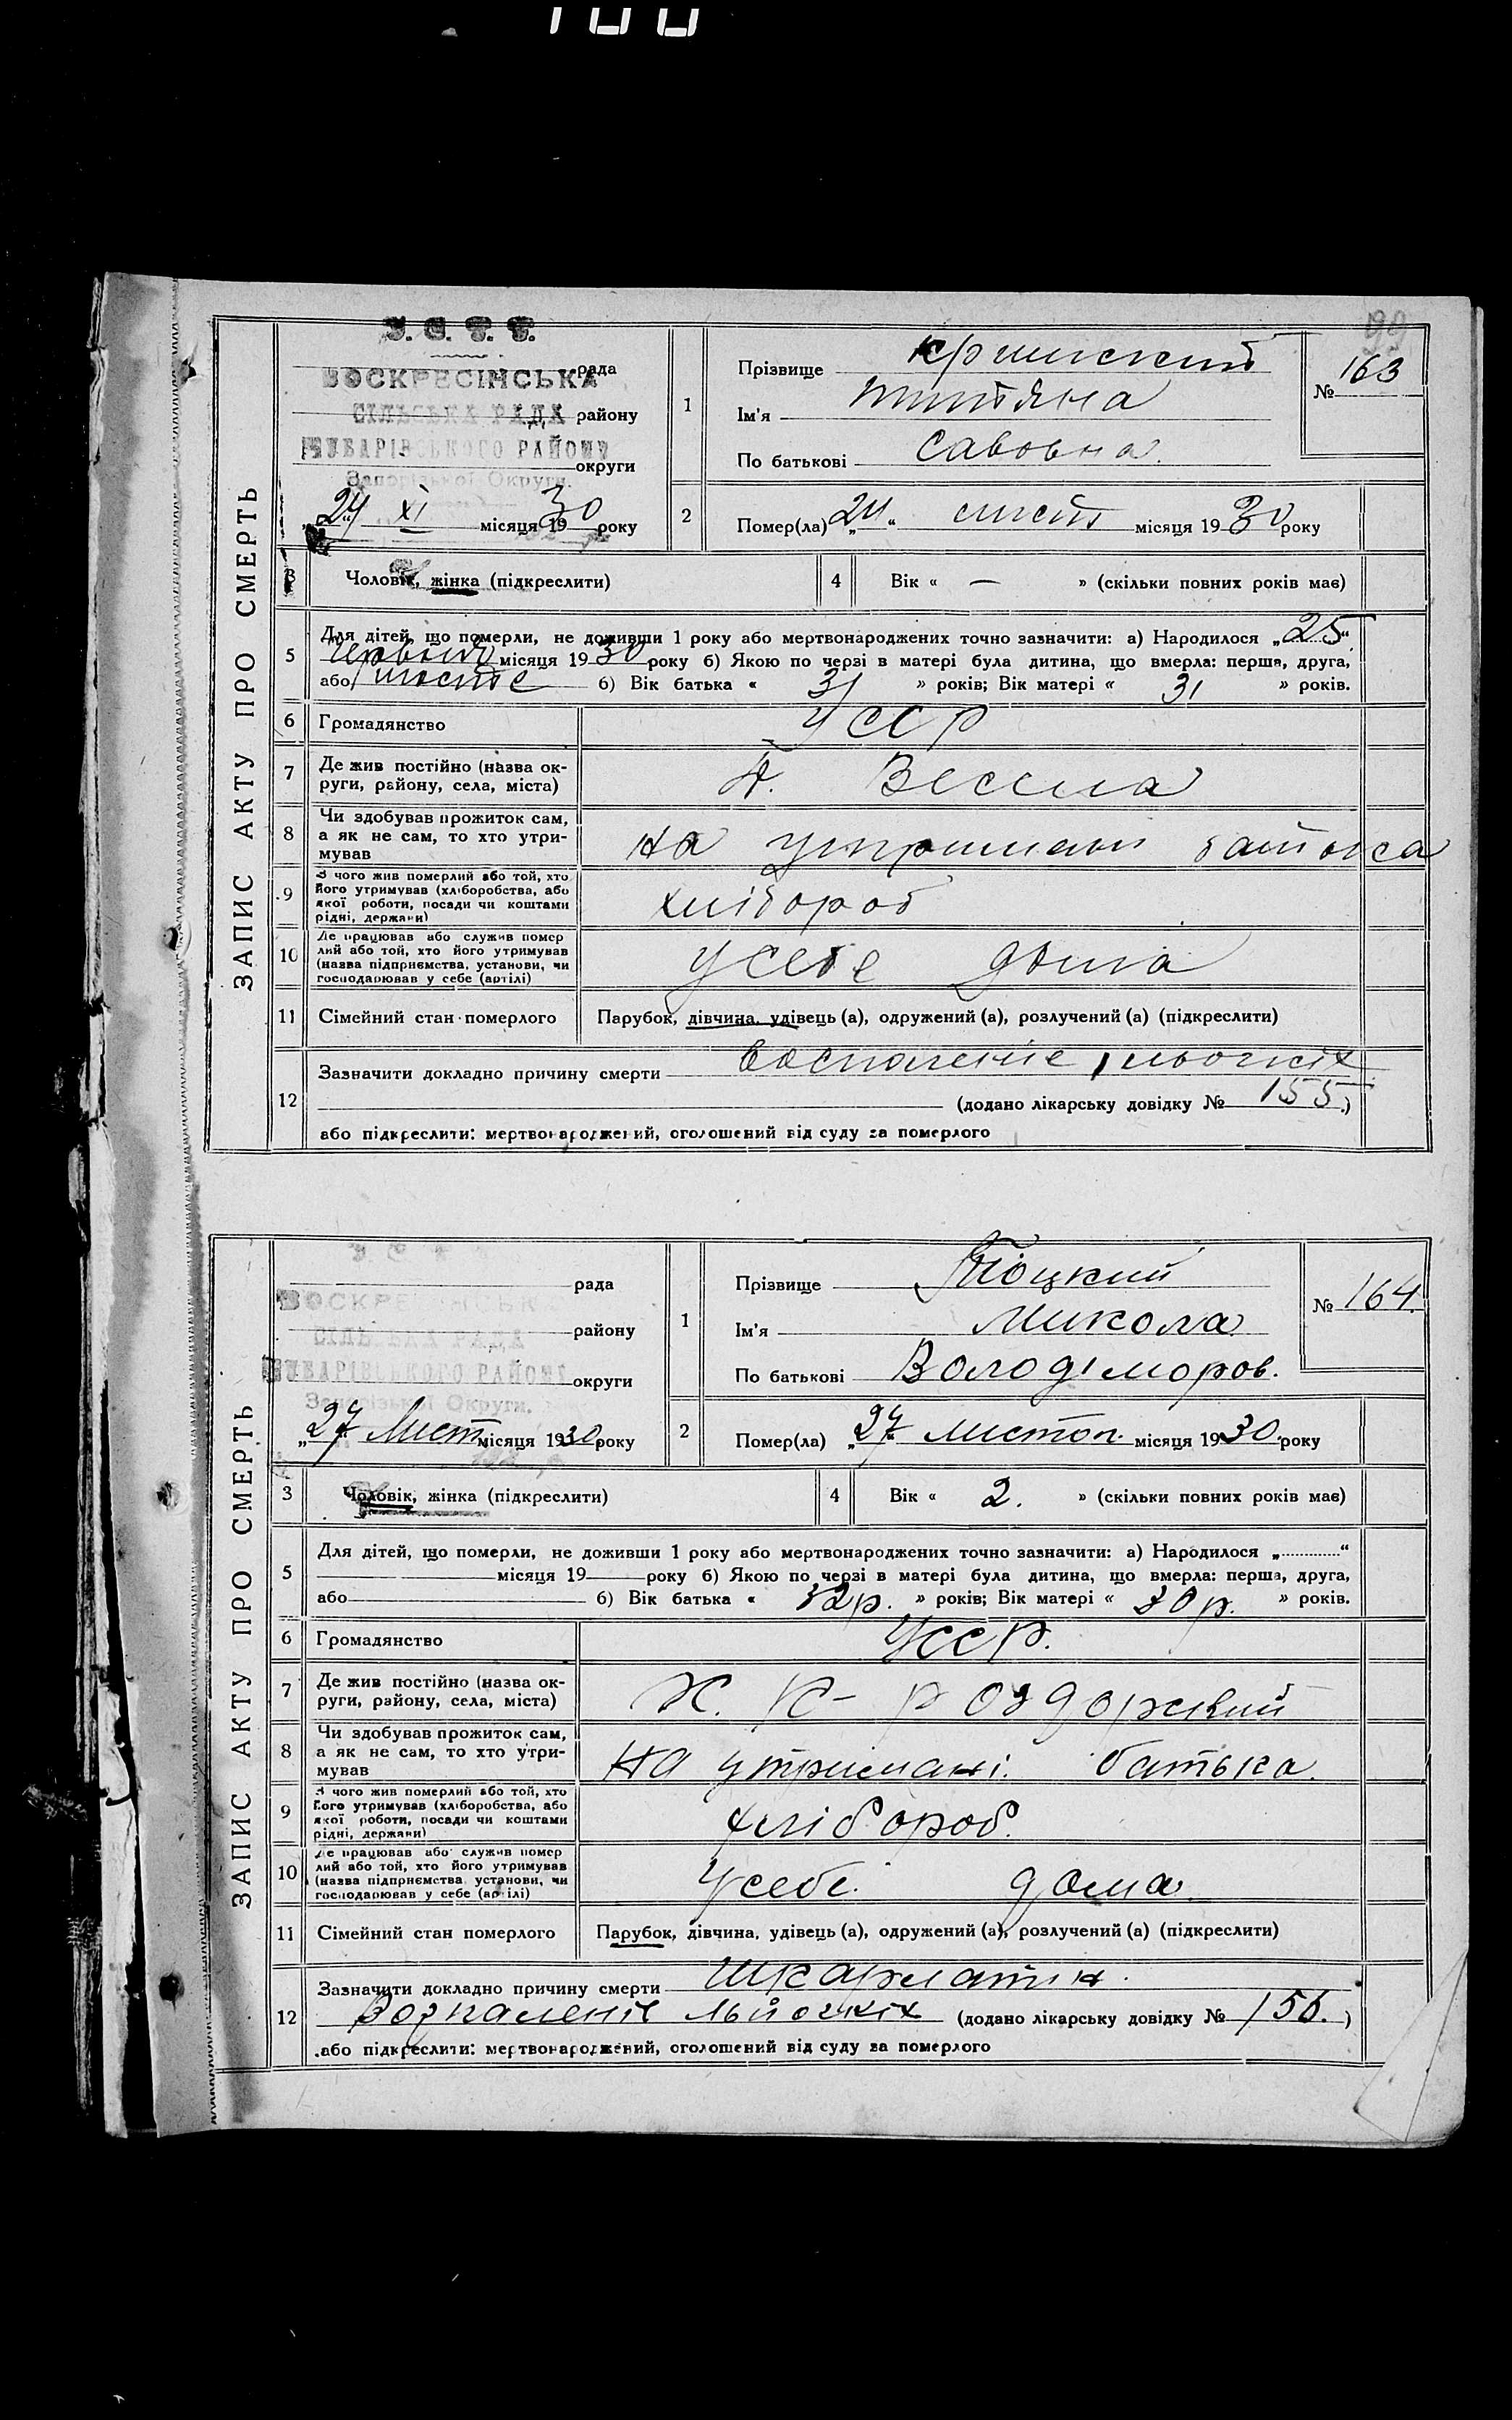 100
99
ЗАПИС АКТУ ПРО СМЕРТЬ
У. С. Р. Р.
рада
ВОСКРЕСІНСЬКА
СІЛЬСЬКА РАДА району
РАЙОНУ
округи
Запорізької Округи.
„24“ XI місяця 1930 року
1
Прізвище
Ім'я
По батькові Савовна
№ 163
2
Помер(ла) „24“ лист місяця 1930 року
3
Чоловік, жінка (підкреслити)
4
Вік « — » (скільки повних років має)
5
Для дітей, що померли, не доживши 1 року або мертвонароджених точно зазначити: а) Народилося „25“
місяця 1930 року б) Якою по черзі в матері була дитина, що вмерла: перша, друга,
або б) Вік батька « 31 » років; Вік матері « 31 » років.
6
Громадянство УССР
7
Де жив постійно (назва округи, району, села, міста)
Весела
8
Чи здобував прожиток сам, а як не сам, то хто утримував
на утримани батька
9
З чого жив померлий або той, хто його утримував (хліборобства, або якої роботи, посади чи коштами рідні, держави)
хлібороб
10
Де працював або служив померлий або той, хто його утримував (назва підприємства, установи, чи господарював у себе (артілі)
усебе дома
11
Сімейний стан померлого
Парубок, дівчина, удівець (а), одружений (а), розлучений (а) (підкреслити)
12
Зазначити докладно причину смерти Воспаленіе льогкіх
(додано лікарську довідку № 155.)
або підкреслити: мертвонароджений, оголошений від суду за померлого
ЗАПИС АКТУ ПРО СМЕРТЬ
рада
ВОСКРЕСІНСЬКА
СІЛЬСЬКА РАДА
району
РАЙОНУ
округи
Запорізької Округи.
„27“ Лист. місяця 1930 року
1
Прізвище
Ім'я Микола
По батькові Володіморов.
№ 164.
2
Помер(ла) „27“ листоп. місяця 1930. року
3
Чоловік, жінка (підкреслити)
4
Вік « 2. » (скільки повних років має)
5
Для дітей, що померли, не доживши 1 року або мертвонароджених точно зазначити: а) Народилося „ “
місяця 19 року б) Якою по черзі в матері була дитина, що вмерла: перша, друга,
або б) Вік батька « 32 р. » років; Вік матері « 30 р. » років.
6
Громадянство УССР.
7
Де жив постійно (назва округи, району, села, міста)
Х. К-Роздоржній
8
Чи здобував прожиток сам, а як не сам, то хто утримував
на утримані. батька.
9
З чого жив померлий або той, хто його утримував (хліборобства, або якої роботи, посади чи коштами рідні, держави)
хлібороб.
10
Де працював або служив померлий або той, хто його утримував (назва підприємства, установи, чи господарював у себе (артілі)
Усебе. дома.
11
Сімейний стан померлого
Парубок, дівчина, удівець (а), одружений (а), розлучений (а) (підкреслити)
12
Зазначити докладно причину смерти Шкарлатин.
Возпаленіє льйогкіх (додано лікарську довідку № 156.)
або підкреслити: мертвонароджений, оголошений від суду за померлого